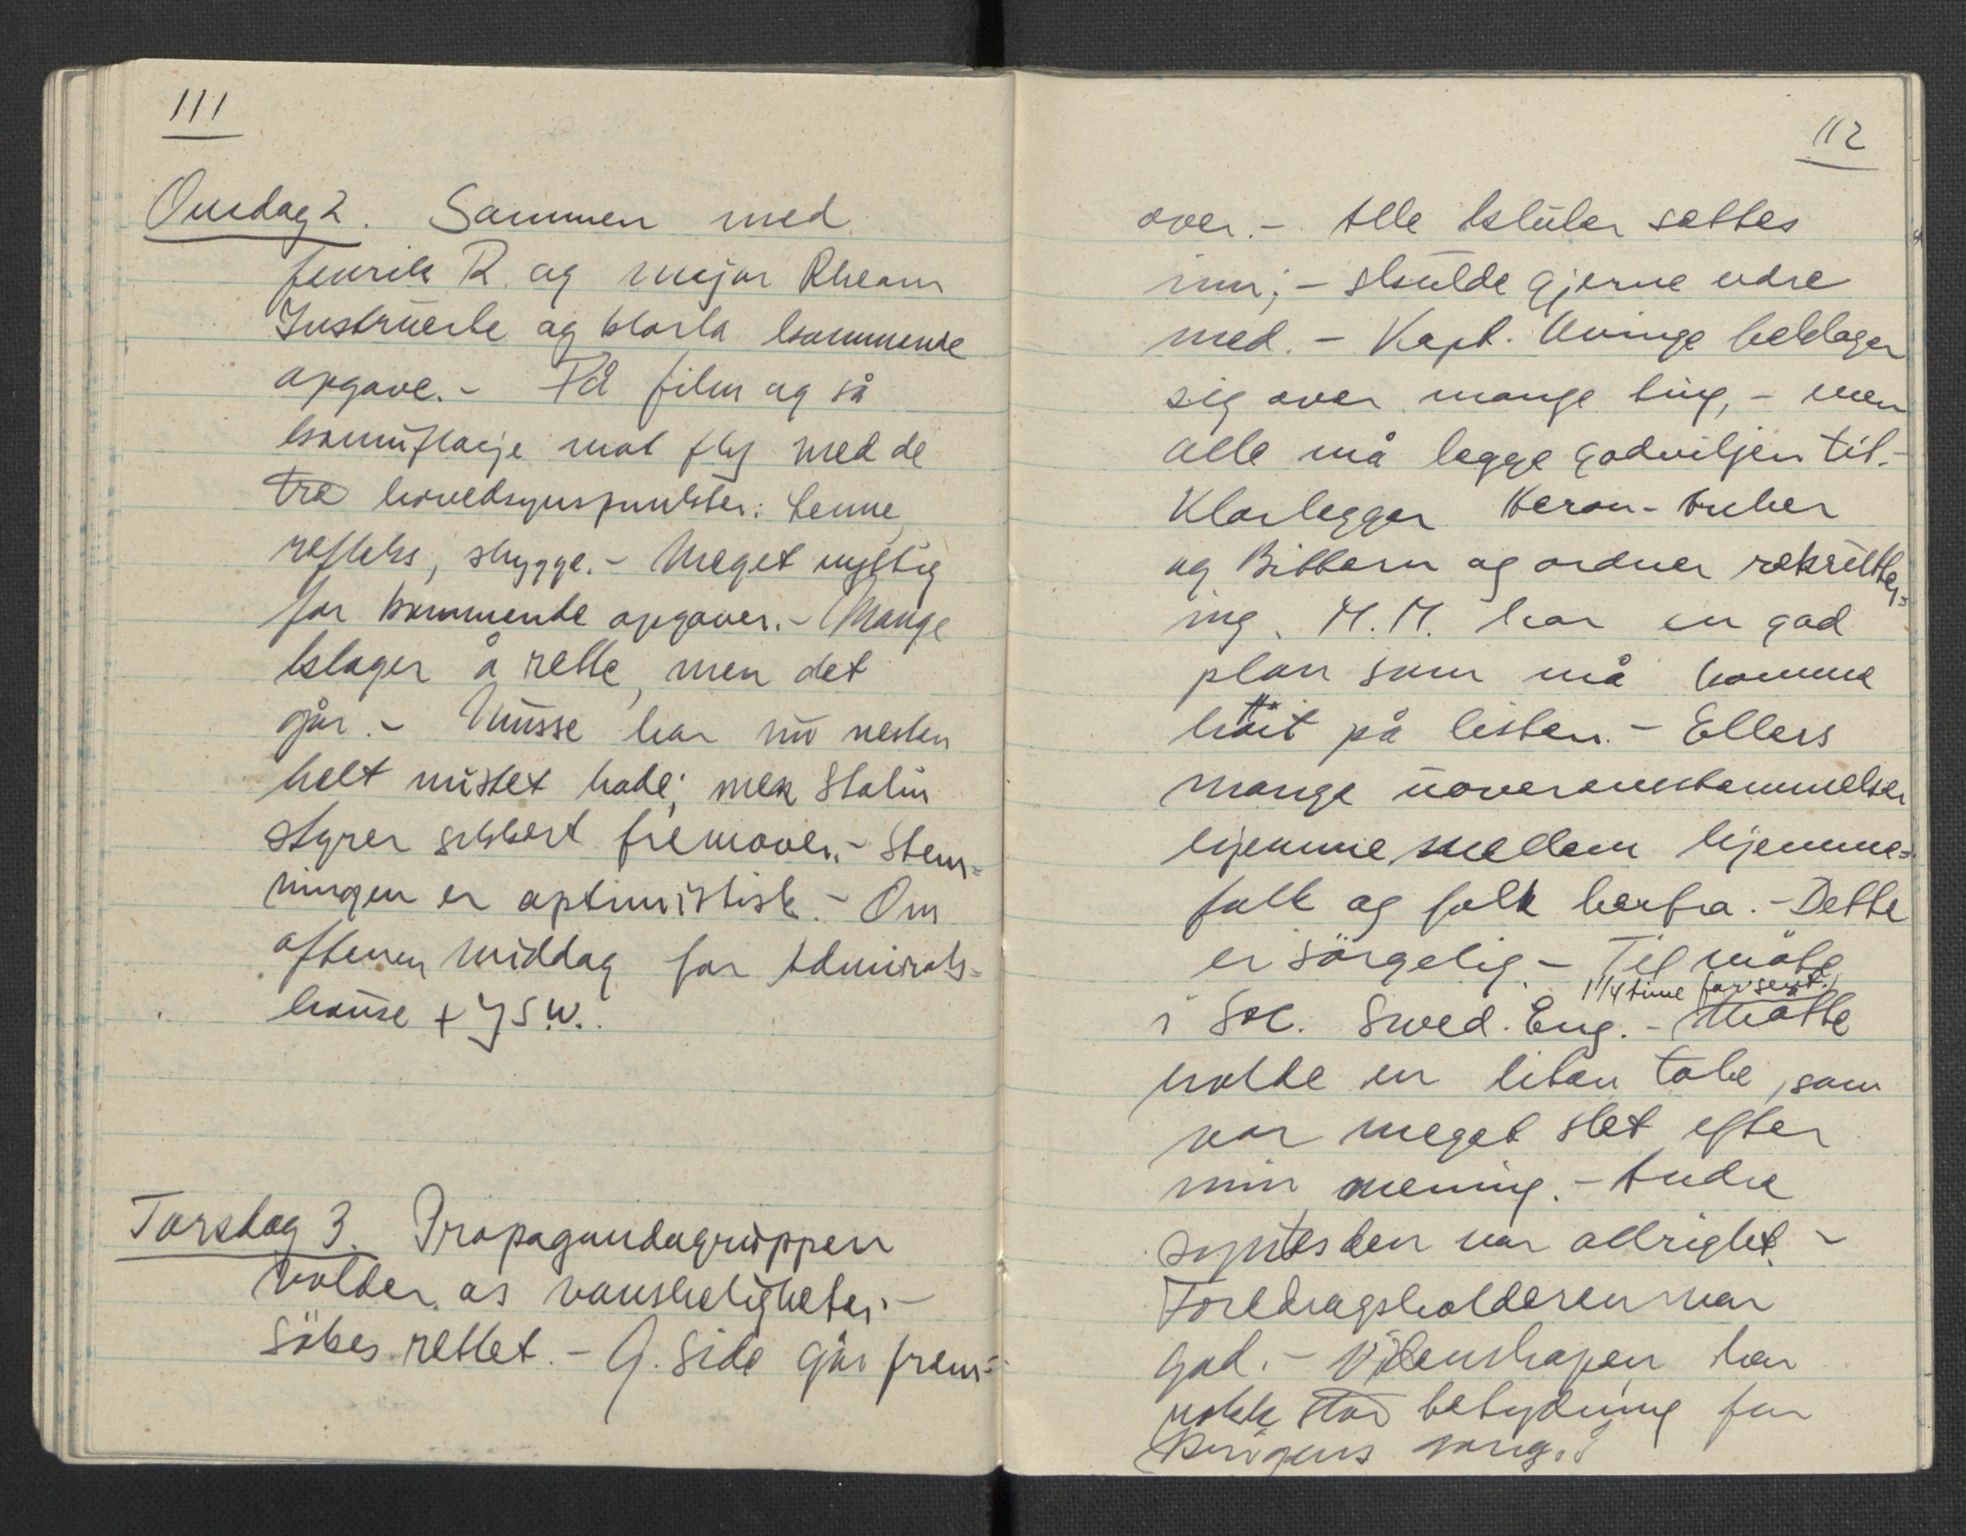 111
Onsdag 2. Sammen med
fenrik R. og major Rheam
Instruerte og klarla kommende
opgave.- På film og så
kamuflasje mot fly med de
tre hovedsynspunkter:
refleks, skygge.- Meget nyttig
for kommende opgaver.- Mange
klager å rette, men det
går.- Musse har nu nesten
helt mistet hode; men Stalin
styrer sikkert fremover.- Stem-
ningen er optimistisk.- Om
aftenen middag for Admirals-
house + J.S.W.
Torsdag 3. Propagandagruppen
volder os vanskeligheter.-
Sökes rettet.- G. Side går frem-
112
over.- Alle kluter settes
inn;- skulde gjerne vdre
med.- Kapt. Uvinge beklager
sig over mange ting,- men
alle må legge godviljen til.-
Klarlegger Heron-
og Bittern og ordner rekrutter-
ing. M.M. har en god
plan som må komme
höit på listen.- Ellers
mange uoverensstemmelser
hjemme mellem hjemme-
folk og folk herfra.- Dette
er sörgelig.- Til möte
1 1/4 time for sent.
i Soc. Swed. Eng.- Måtte
holde en liten tale, som
var meget slet efter
min mening.- Andre
syntes den var allright.-
Foredragsholderen var
god.- Videnskapen har
nokk stor betydning for
krigens gang.